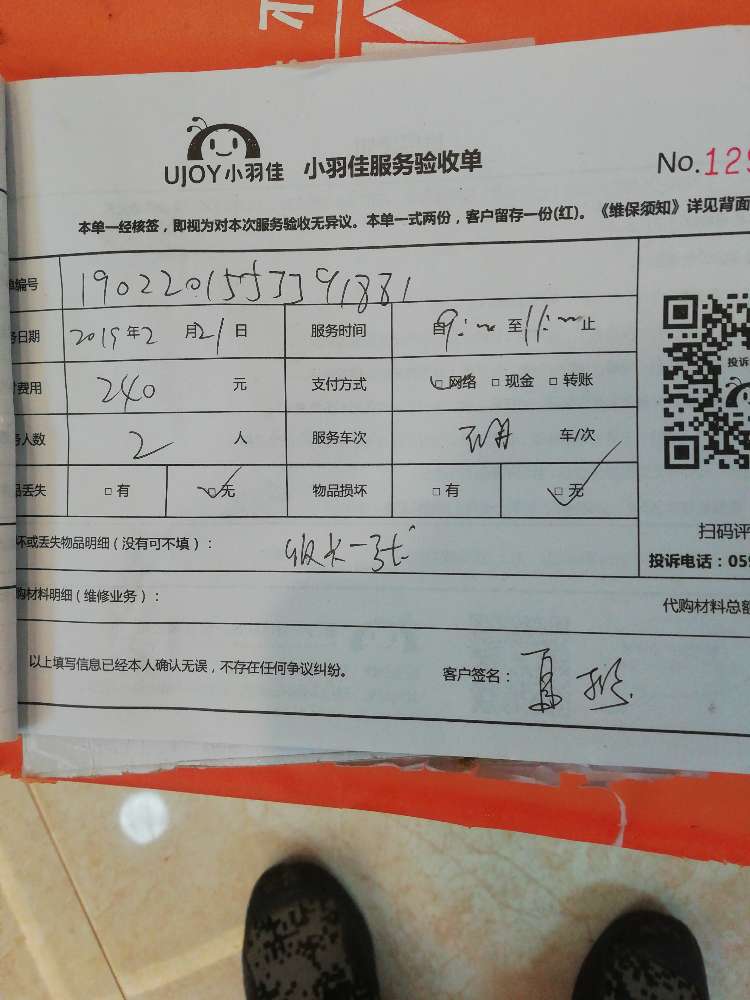 UJOY小羽佳 小羽佳服务验收单 No.129
本单一经核签，即视为对本次服务验收无异议。本单一式两份，客户留存一份(红)。《维保须知》详见背面
单编号 1902201553391881
务日期 2019年2月21日 服务时间 自9:00至11:00止
费用 240 元 支付方式 □网络 □现金 □转账
务人数 2 人 服务车次 车/次
品丢失 □有 □无 物品损坏 □有 □无
坏或丢失物品明细（没有可不填）： 收水一张
购材料明细（维修业务）： 代购材料总额
投诉
扫码评
投诉电话：059
以上填写信息已经本人确认无误，不存在任何争议纠纷。 客户签名：